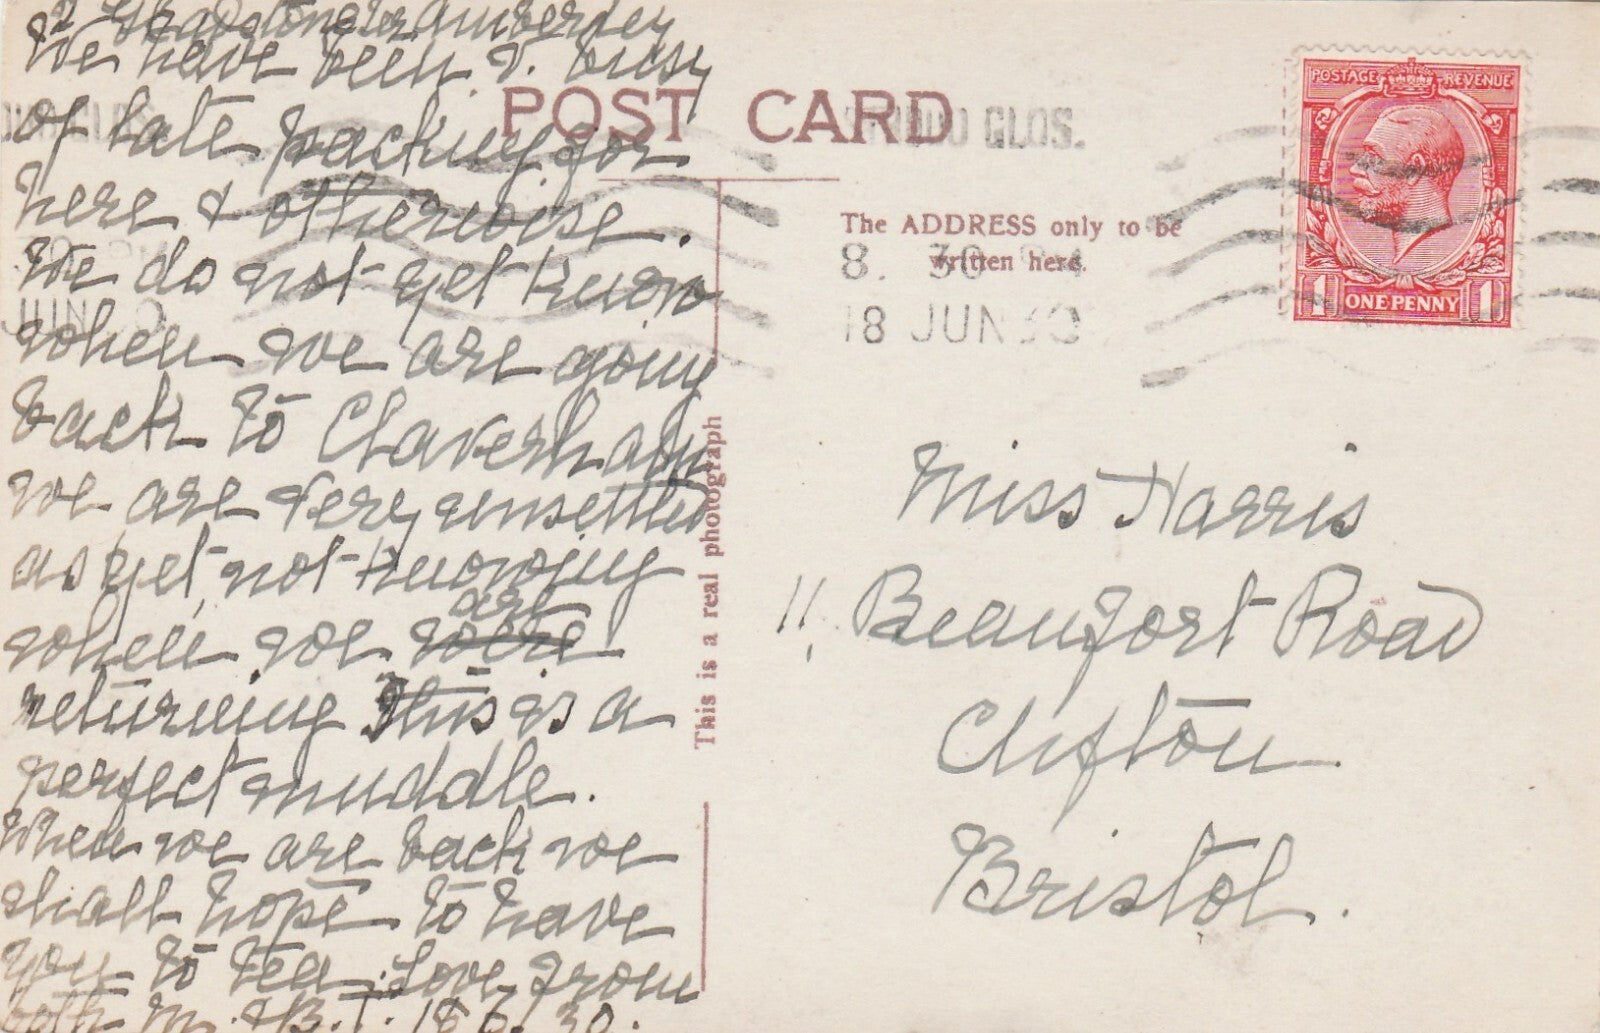 We have been v. busy
of late packing for
here & otherwise.
We do not yet know
when we are going
back to Claverham
we are very unsettled
as yet, not knowing
when we are
returning this is a
perfect muddle.
When we are back we
shall hope to have
you to tea. Love from
both M. & B. T. 18/6/30.
POST CARD
The ADDRESS only to be
written here.
STROUD GLOS.
8. 30
18 JUN 30
JUN
POSTAGE REVENUE
1 ONE PENNY 1
This is a real photograph
Miss Harris
11, Beaufort Road
Clifton
Bristol.